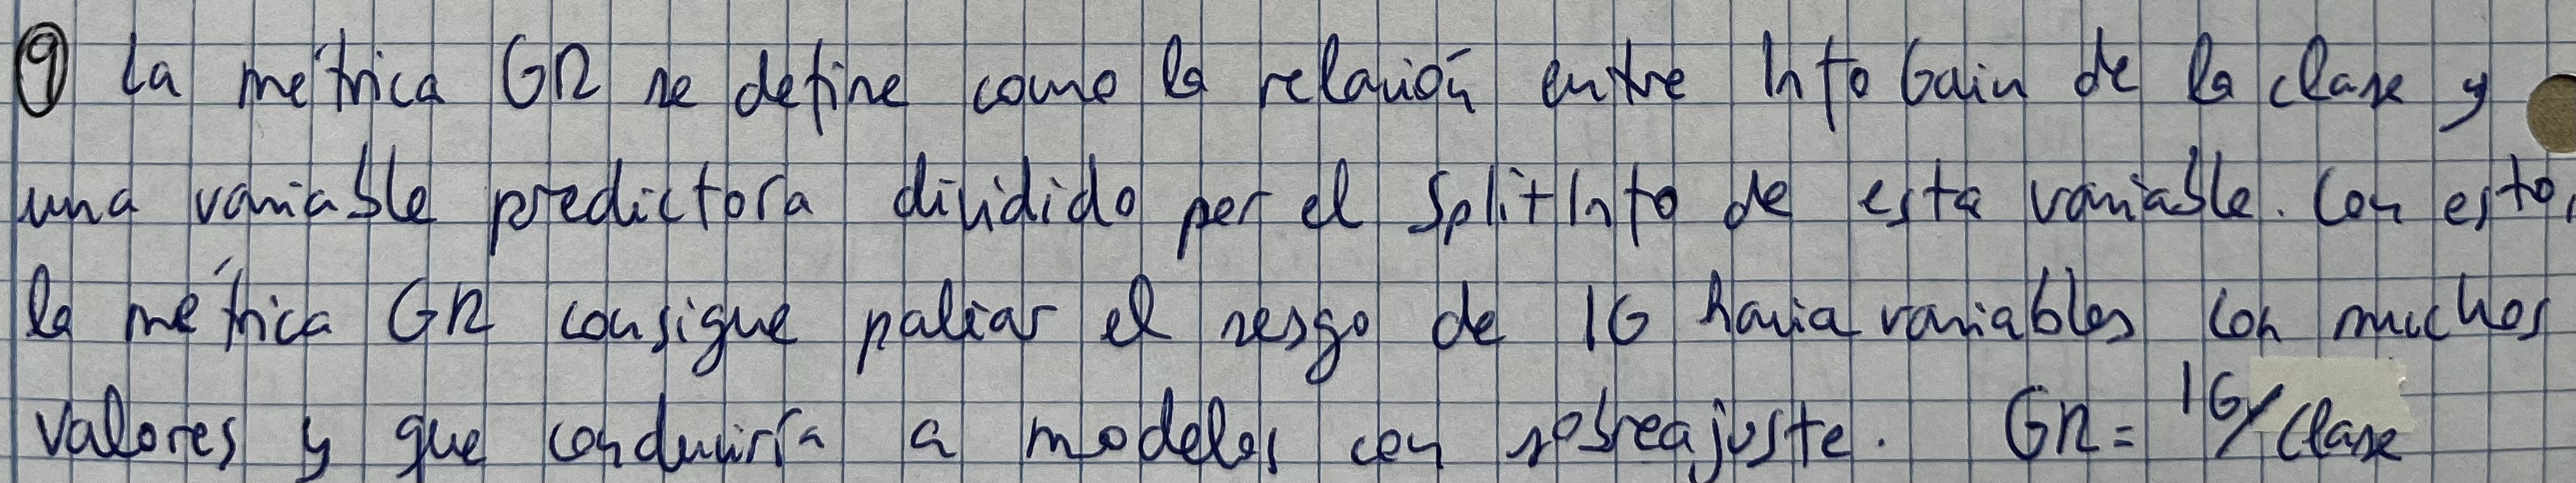 ⑨ La métrica GR se define como la relación entre InfoGain de la clase y
una variable predictora dividido por el SplitInfo de esta variable. Con esto,
la métrica GR consigue paliar el sesgo de IG hacia variables con muchos
valores y que conduciría a modelos con sobreajuste. GR = IG/clase